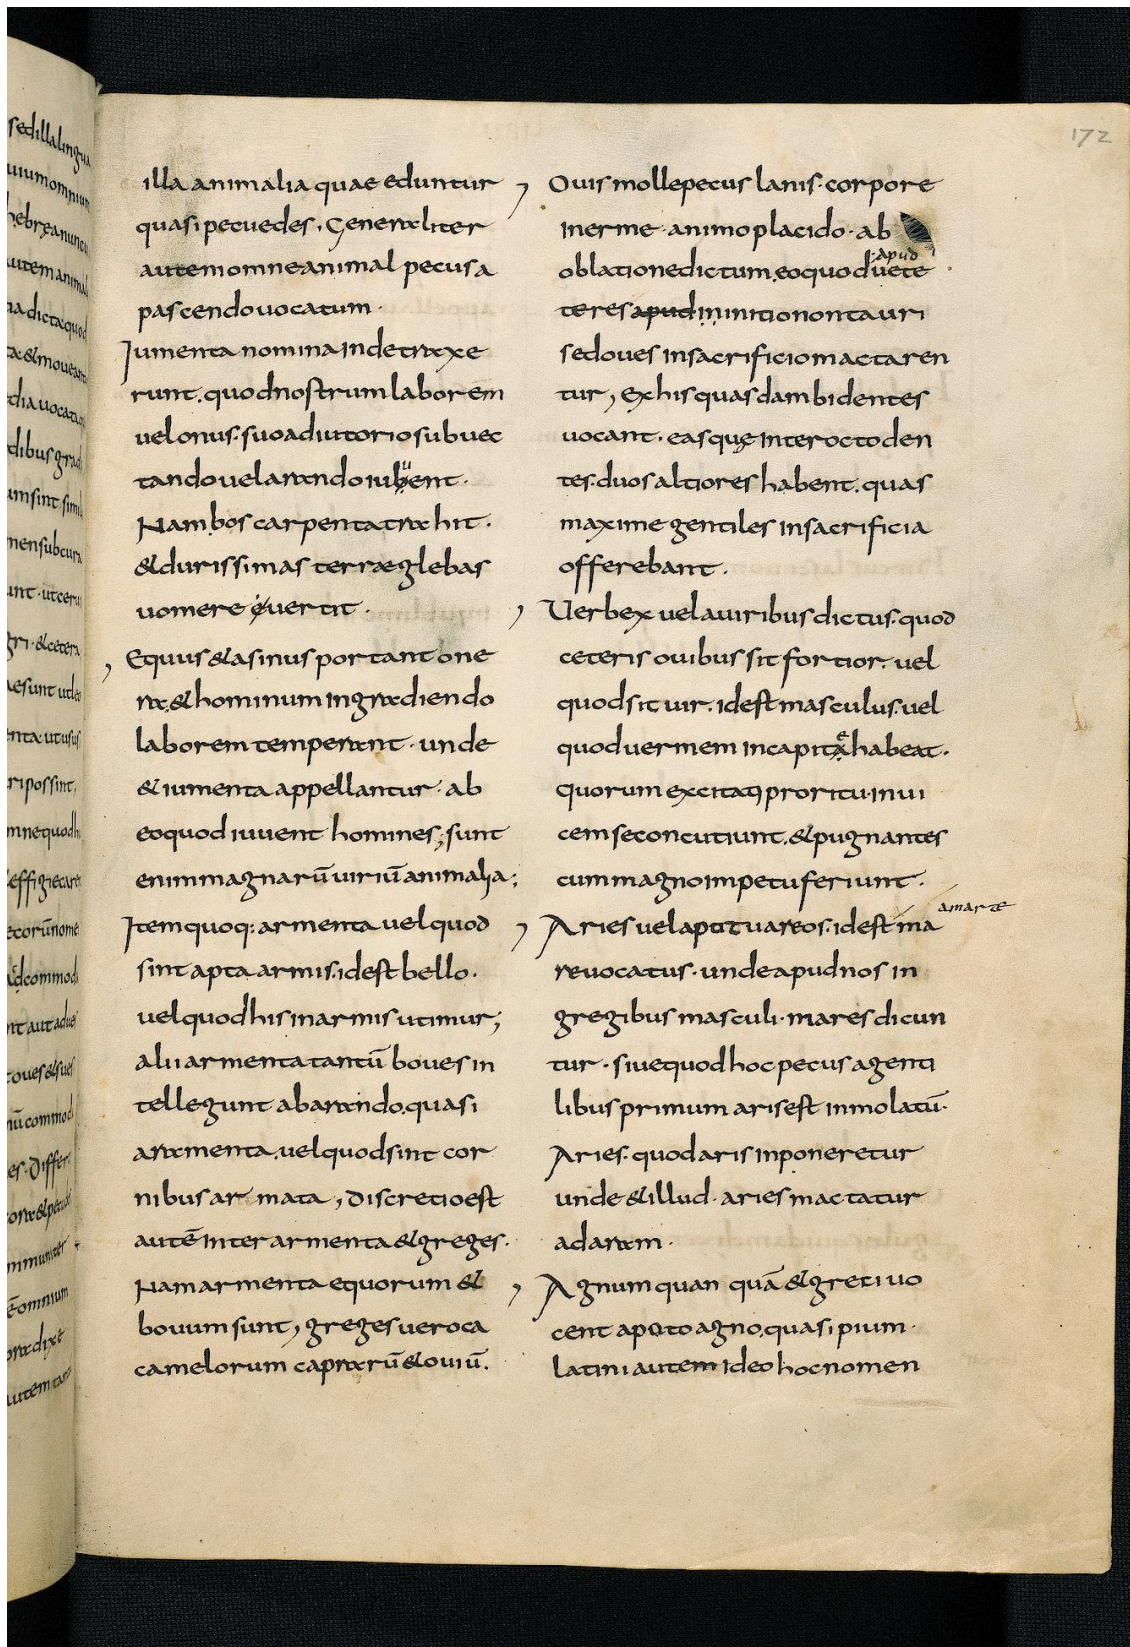 172
illa animalia quae eduntur
quasi pecuedes. Generaliter
autem omne animal pecus a
pascendo uocatum.
Iumenta nomina inde traxe
runt. quod nostrum laborem
uel onus. suo adiutorio subuec
tando uel arando iubent.
Nam bos carpenta trahit.
& durissimas terrae glebas
uomere euertit.
Equus & asinus portant one
ra. & hominum ingrediendo
laborem temperant. unde
& iumenta appellantur. ab
eo quod iuuent homines; sunt
enim magnarū uiriū animalia;
Item quoq: armenta uel quod
sint apta armis. id est bello.
uel quod his in armis utimur;
alii armenta tantū boues in
tellegunt ab arando. quasi
aramenta. uel quod sint cor
nibus armata, Discretio est
autē inter armenta & greges.
Nam armenta equorum &
bouum sunt, greges uero ca
camelorum caprarū & ouiū.
Ouis molle pecus lanis. corpore
inerme. animo placido. ab
oblatione dictum. eo quod apud uete
teres apud in initio non tauri
sed oues in sacrificio mactaren
tur, Ex his quasdam bidentes
uocant. eas quę inter octo den
tes. duos altiores habent. quas
maxime gentiles in sacrificia
offerebant.
Uerbex uel a uiribus dictus. quod
ceteris ouibus sit fortior. uel
quod sit uir. id est masculus. uel
quod uermem in capite habeat.
quorum excitati pro ritu inui
cem se concutiunt. & pugnantes
cum magno impetu feriunt.
amarte
Aries uel apo tu areos. id est ma
re uocatus. unde apud nos in
gregibus masculi. mares dicun
tur. siue quod hoc pecus a genti
libus primum aris est inmolatū.
Aries. quod aris inponeretur
unde & illud. aries mactatur
ad aram.
Agnum quan quā & greti uo
cent apo to agno. quasi pium.
latini autem ideo hoc nomen